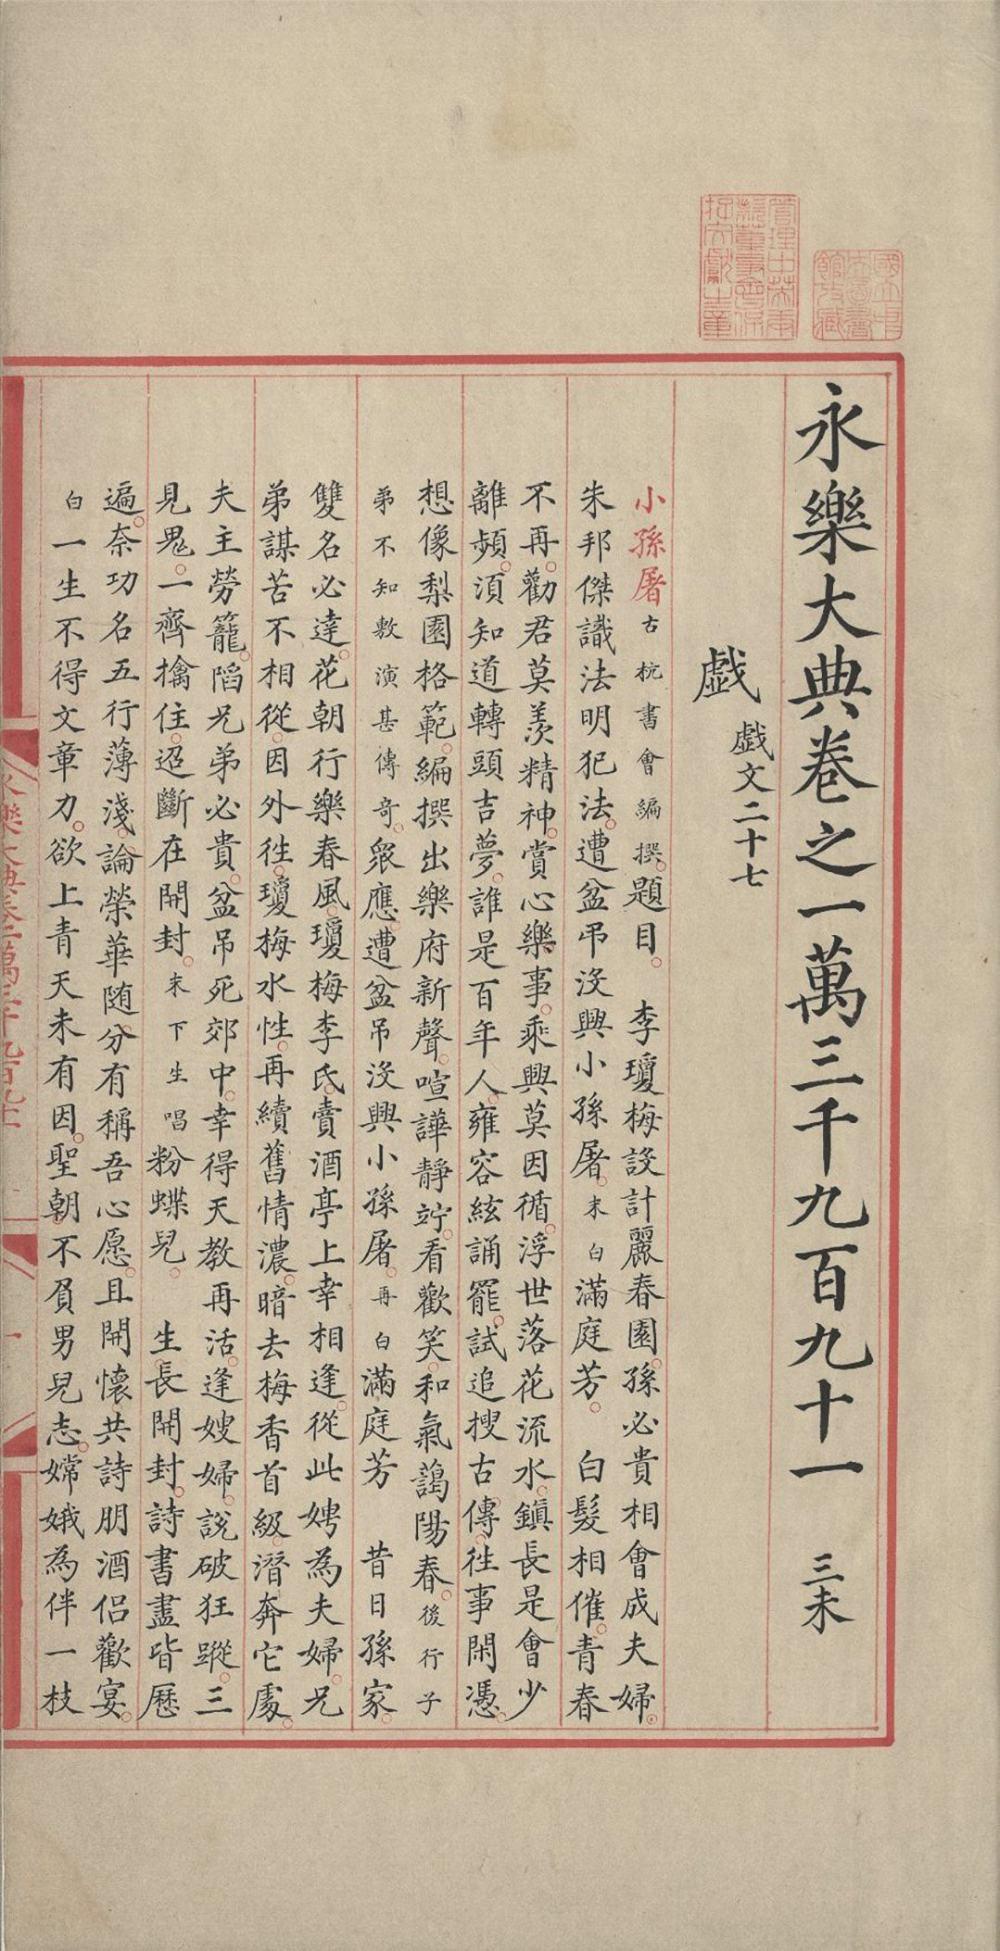 永樂大典卷之一萬三千九百九十一 三未
戲 戲文二十七
小孫屠 古杭書會編撰。題目。 李瓊梅設計麗春園。孫必貴相會成夫婦。
朱邦傑識法明犯法。遭盆吊沒興小孫屠。末白滿庭芳。 白髮相催。青春
不再。勸君莫羨精神。賞心樂事。乘興莫因循。浮世落花流水。鎮長是會少
離頻。須知道轉頭吉夢。誰是百年人。雍容絃誦罷。試追搜古傳。往事閑憑。
想像梨園格範。編撰出樂府新聲。喧譁靜竚。看歡笑。和氣藹陽春。後行子
弟不知敷演甚傳奇。眾應。遭盆吊沒興小孫屠。再白滿庭芳 昔日孫家。
雙名必達。花朝行樂春風。瓊梅李氏。賣酒亭上幸相逢。從此娉為夫婦。兄
弟謀苦不相從。因外往。瓊梅水性。再續舊情濃。暗去梅香首級。潛奔它處。
夫主勞籠。陷兄弟必貴。盆吊死郊中。幸得天教再活。逢嫂婦。說破狂蹤。三
見鬼。一齊擒住。迢斷在開封。末下生唱粉蝶兒。 生長開封。詩書盡皆歷
遍。奈功名五行薄淺。論榮華隨分。有稱吾心愿。且開懷共詩朋酒侶歡宴。
白一生不得文章力。欲上青天未有因。聖朝。不負男兒志。嫦娥為伴一枝